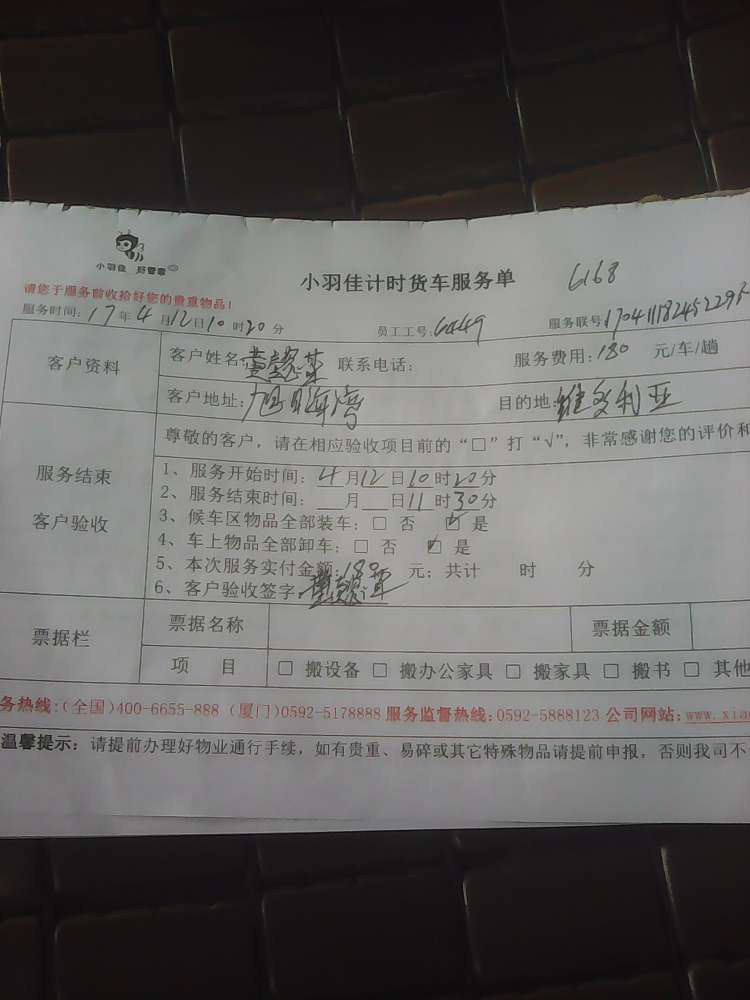 小羽佳 好管家
小羽佳计时货车服务单 6168
请您于服务前收拾好您的贵重物品!
服务时间:17年4月12日10时20分 员工工号:6449 服务联号
客户资料
客户姓名: 联系电话: 服务费用:180 元/车/趟
客户地址:旭日海湾 目的地:维多利亚
服务结束
客户验收
尊敬的客户,请在相应验收项目前的“□”打“√”,非常感谢您的评价和
1、服务开始时间:4月12日10时20分
2、服务结束时间:___月___日11时30分
3、候车区物品全部装车:□ 否 ☑ 是
4、车上物品全部卸车:□ 否 ☑ 是
5、本次服务实付金额:180 元;共计 时 分
6、客户验收签字:
票据栏
票据名称 票据金额
项 目 □ 搬设备 □ 搬办公家具 □ 搬家具 □ 搬书 □ 其他
务热线:(全国)400-6655-888 (厦门)0592-5178888 服务监督热线:0592-5888123 公司网站:www.xiao
温馨提示:请提前办理好物业通行手续,如有贵重、易碎或其它特殊物品请提前申报,否则我司不